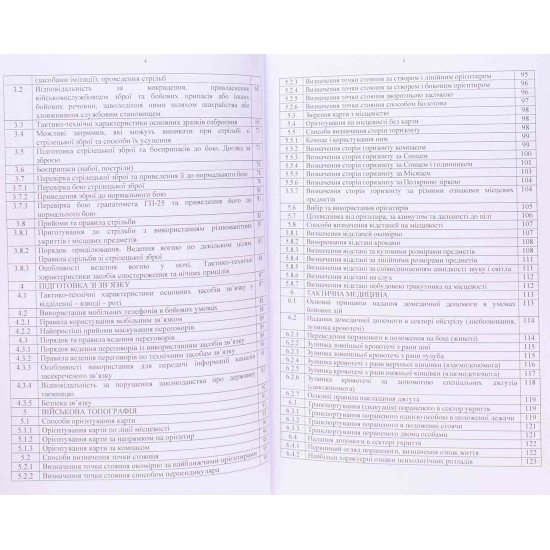 4
(засобами імітації), проведення стрільб
3.2 Відповідальність за викрадення, привласнення
військовослужбовцем зброї та бойових припасів або інших
бойових речовин, заволодіння ними шляхом шахрайства або
зловживання службовим становищем
3.3 Тактико-технічні характеристики основних зразків озброєння
3.4 Можливі затримки, які можуть виникати при стрільбі зі
стрілецької зброї та способи їх усунення
3.5 Підготовка стрілецької зброї та боєприпасів до бою. Догляд за
зброєю
3.6 Боєприпаси (набої, постріли)
3.7 Перевірка стрілецької зброї та приведення її до нормального бою
3.7.1 Перевірка бою стрілецької зброї
3.7.2 Приведення зброї до нормального бою
3.7.3 Перевірка бою гранатомета ГП-25 та приведення його до
нормального бою
3.8 Прийоми та правила стрільби
3.8.1 Приготування до стрільби з використанням різноманітних
укриттів і місцевих предметів
3.8.2 Порядок прицілювання. Ведення вогню по декільком цілям.
Правила стрільби зі стрілецької зброї
3.8.3 Особливості ведення вогню у ночі. Тактико-технічні
характеристики засобів спостереження та нічних прицілів
4 ПІДГОТОВКА ЗІ ЗВ'ЯЗКУ
4.1 Тактико-технічні характеристики основних засобів зв'язку у
відділенні – взводі – роті
4.2 Використання мобільних телефонів в бойових умовах
4.2.1 Правила користування мобільним зв'язком
4.2.2 Найпростіші прийоми маскування переговорів
4.3 Порядок та правила ведення переговорів
4.3.1 Порядок ведення переговорів із використанням засобів зв'язку
4.3.2 Правила ведення переговорів по технічним засобам зв'язку
4.3.3 Особливості використання для передачі інформації каналів
засекреченого зв'язку
4.3.4 Відповідальність за порушення законодавства про державну
таємницю
4.3.5 Безпека зв'язку
5 ВІЙСЬКОВА ТОПОГРАФІЯ
5.1 Способи орієнтування карти
5.1.1 Орієнтування карти по лінії місцевості
5.1.2 Орієнтування карти за напрямком на орієнтир
5.1.3 Орієнтування карти за компасом
5.2 Способи визначення точки стояння
5.2.1 Визначення точки стояння окомірно за найближчими орієнтирами
5.2.2 Визначення точки стояння способом перпендикуляра
5
5.2.3 Визначення точки стояння за створом і лінійним орієнтиром 95
5.2.4 Визначення точки стояння за створом і боковим орієнтиром 96
5.2.5 Визначення точки стояння зворотною засічкою 96
5.2.6 Визначення точки стояння способом Болотова 97
5.3 Звірення карти і місцевості 98
5.4 Орієнтування на місцевості без карти 98
5.5 Способи визначення сторін горизонту 98
5.5.1 Компас і користування ним 98
5.5.2 Визначення сторін горизонту компасом 99
5.5.3 Визначення сторін горизонту за Сонцем 100
5.5.4 Визначення сторін горизонту за Сонцем і годинником 100
5.5.5 Визначення сторін горизонту за Місяцем
5.5.6 Визначення сторін горизонту за Полярною зіркою
5.5.7 Визначення сторін горизонту за різними ознаками місцевих 104
предметів
5.6 Вибір та використання орієнтирів
5.7 Цілевказівка від орієнтира, за азимутом та дальності до цілі
5.8 Способи визначення відстаней на місцевості
5.8.1 Визначення відстаней окомірно
5.8.2 Вимірювання відстані кроками 108
5.8.3 Визначення відстані за кутовими розмірами предметів 108
5.8.4 Визначення відстані за лінійними розмірами предметів
5.8.5 Визначення відстані за співвідношенням швидкості звуку і світла 111
5.8.6 Визначення відстані на слух 111
5.8.7 Визначення відстані побудовою трикутника на місцевості
6 ТАКТИЧНА МЕДИЦИНА
6.1 Основні принципи надання домедичної допомоги в умовах
бойових дій
6.2 Надання домедичної допомоги в секторі обстрілу (знеболювання, 114
зупинка кровотечі)
6.2.1 Переведення пораненого в положення на боці (животі) 114
6.2.2 Зупинка зовнішньої кровотечі з рани шиї 115
6.2.3 Зупинка зовнішньої кровотечі з рани тулуба
6.2.4 Зупинка кровотечі з рани верхньої кінцівки (взаємодопомога)
6.2.5 Зупинка кровотечі з рани нижньої кінцівки (взаємодопомога)
Зупинка кровотечі за допомогою спеціальних джгутів 118
(самодопомога)
6.2.7 Основні правила накладання джгута 119
6.3 Транспортування (евакуація) пораненого в сектор укриття 119
6.3.1 Транспортування пораненого однією особою в положенні лежачи 119
6.3.2 Транспортування пораненого в положенні стоячи 121
6.3.3 Транспортування пораненого двома особами 121
6.4 Надання допомоги в секторі укриття 122
6.4.1 Первинний огляд пораненого, визначення ознак життя 122
6.4.2 Найбільш характерні ознаки психологічних розладів 123